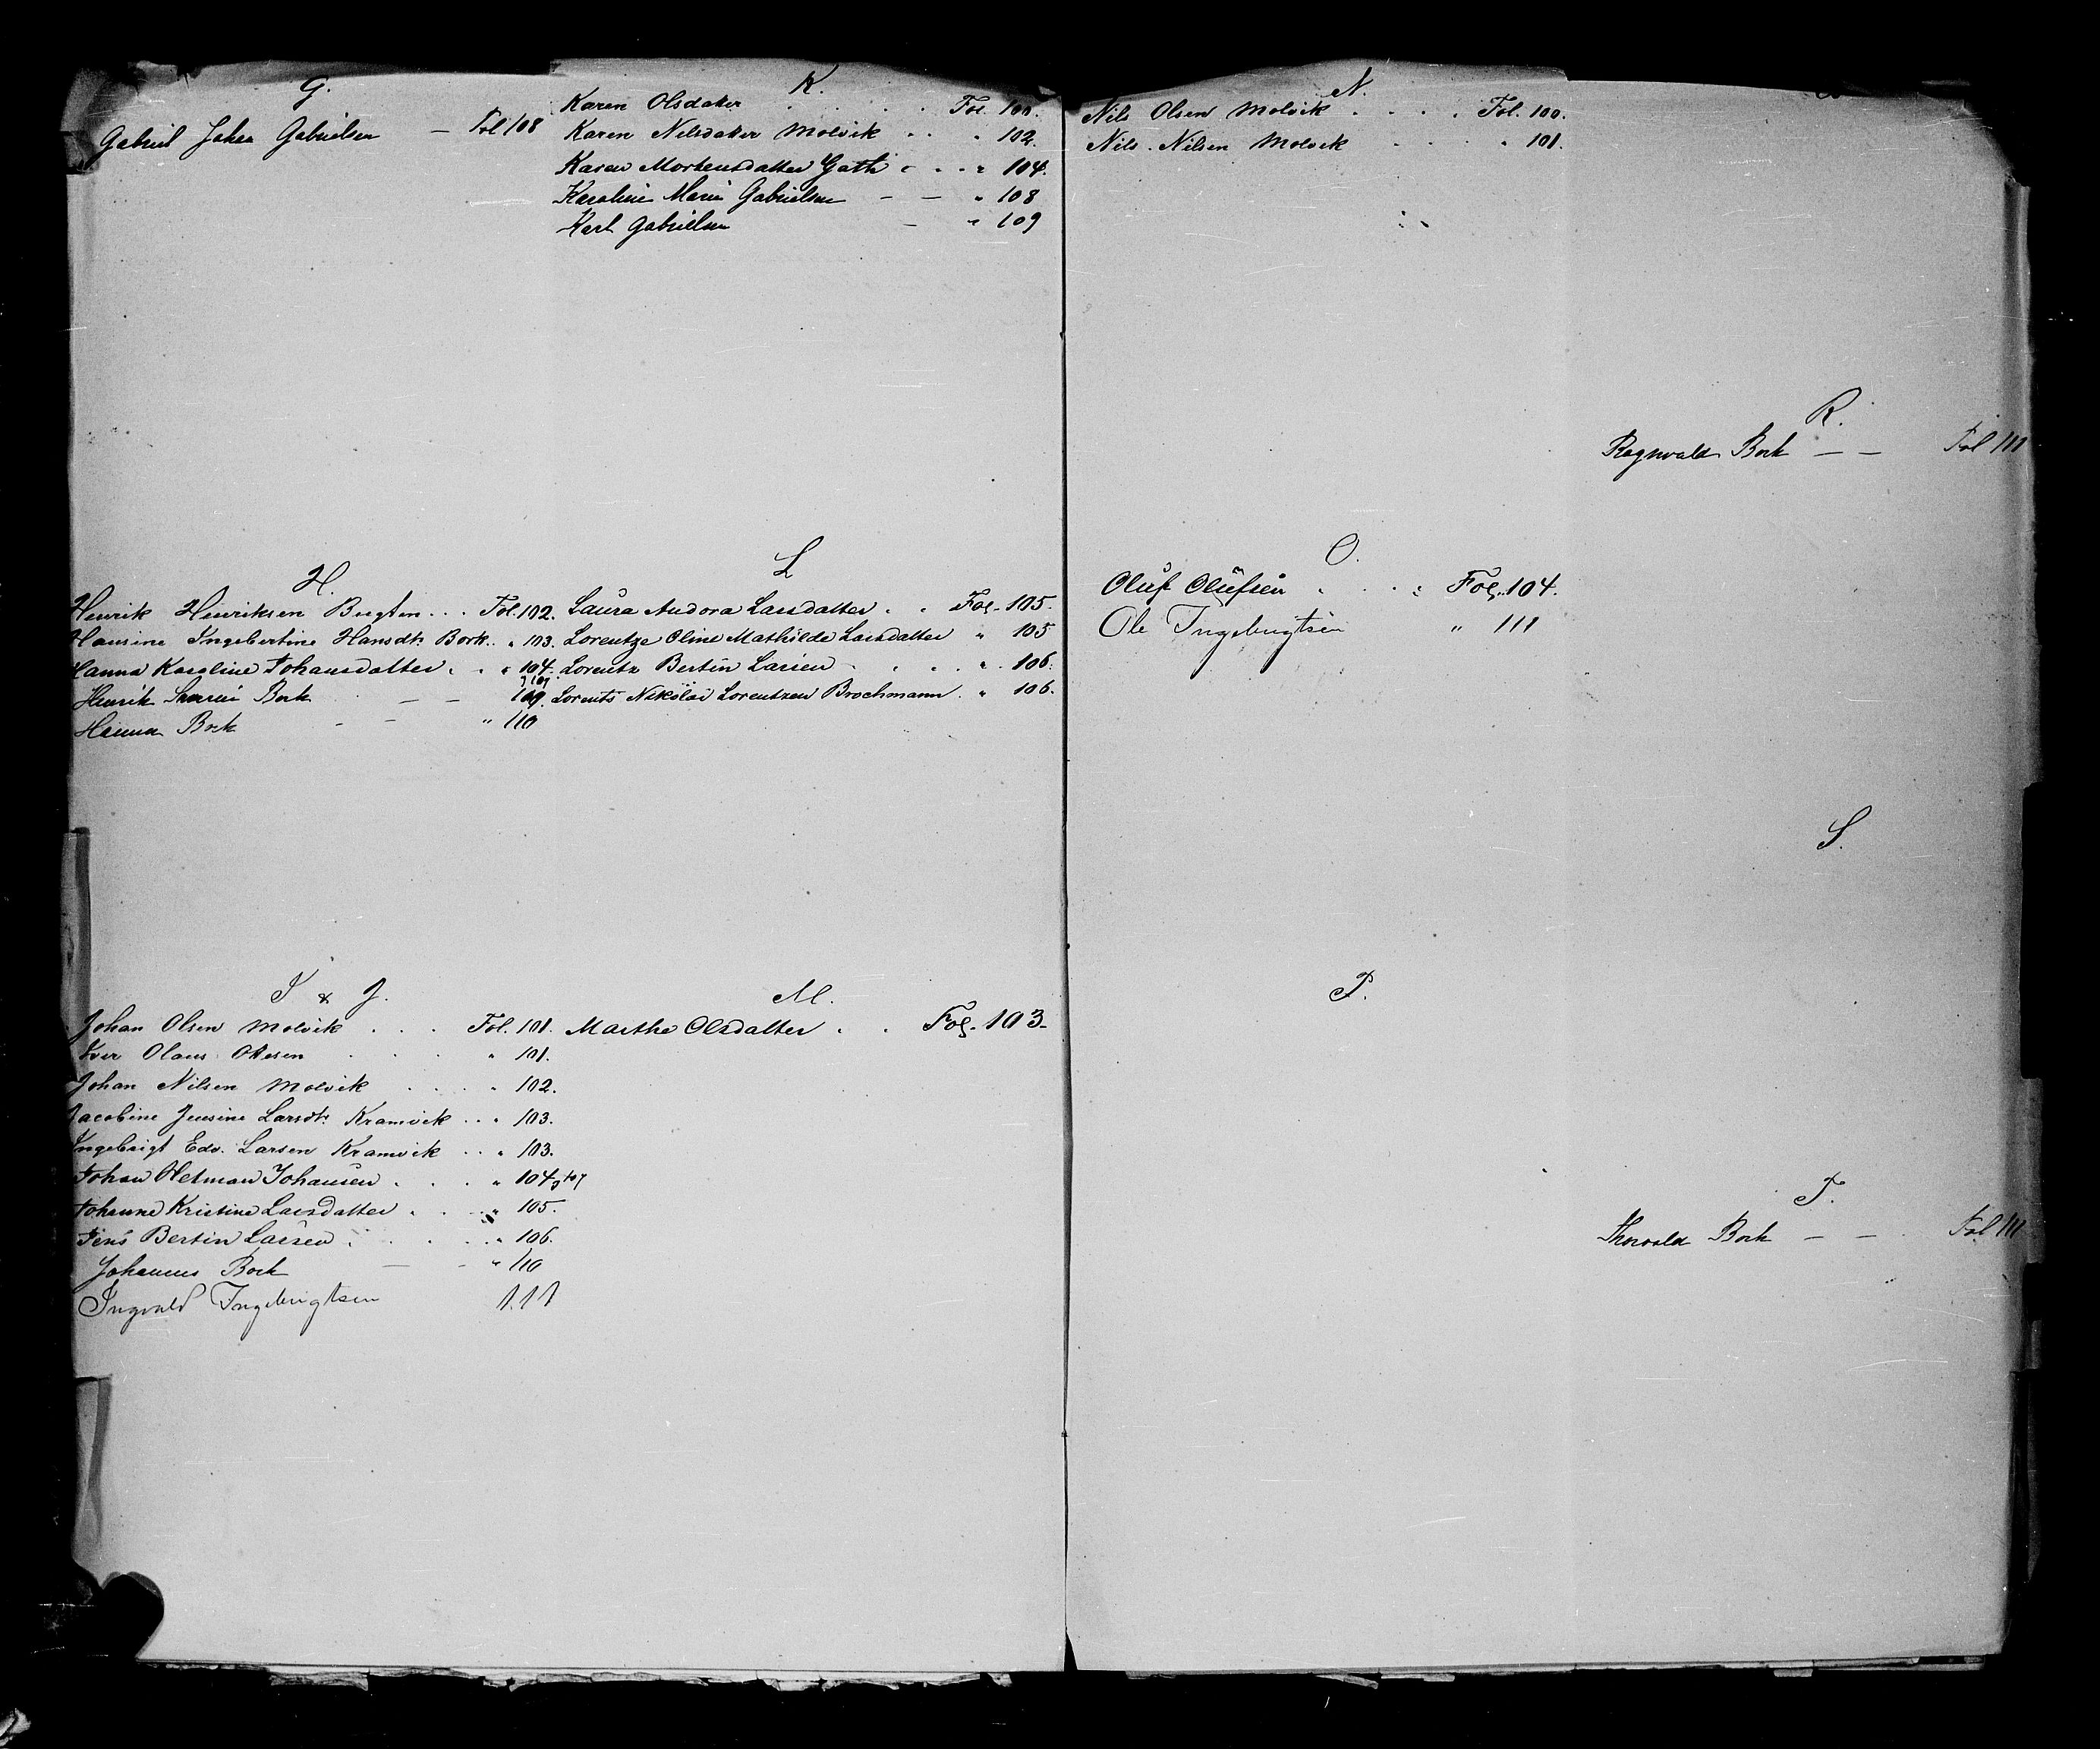 G.
Gabriel Johan Gabrielsen — Fol 108
H.
Henrik Henriksen Bugten . . . Fol. 102.
Hansine Ingebertine Hansdtr Bork . . " 103.
Hanna Karoline Johansdatter . . " 104. 
Henrik Bork — — 109.
Hanna Bork - - " 110
I & J.
Johan Olsen Molvik . . . Fol. 101.
Iver Olaus Olesen . . . " 101.
Johan Nilsen Molvik . . . " 102.
Jacobine Jensine Larsdtr Kramvik . . " 103.
Ingebrigt Edv. Larsen Kramvik . . " 103.
Johan Hetman Johansen . . . " 104, 107
Johanne Kristine Larsdatter . . . " 105.
Jens Bertin Larsen . . . . " 106.
Johannes Bork — - " 110
Ingvald Ingebrigtsen 111
K.
Karen Olsdater . . . . . Fol. 100.
Karen Nilsdater Molvik . . " 102.
Karen Mortensdatter Gath . . . " 104.
Karoline Marie Gabrielsen — — " 108
Karl Gabrielsen — " 109
L
Laura Andora Larsdatter . . Fol. 105.
Lorentze Oline Mathilde Larsdatter " 105
Lorentz Bertin Larsen . . . . " 106.
Lorents Nikolai Lorentzen Brochmann . " 106.
M.
Marthe Olsdatter . . Fol. 103.
N.
Nils Olsen Molvik . . . . Fol. 100.
Nils Nilsen Molvik . . . . " 101.
O.
Oluf Olufsen . . . Fol. 104.
Ole Ingebrigtsen " 111
P.
R.
Ragnvald Bork — — Fol 111
S.
T.
Thorvald Bork — — Fol 111